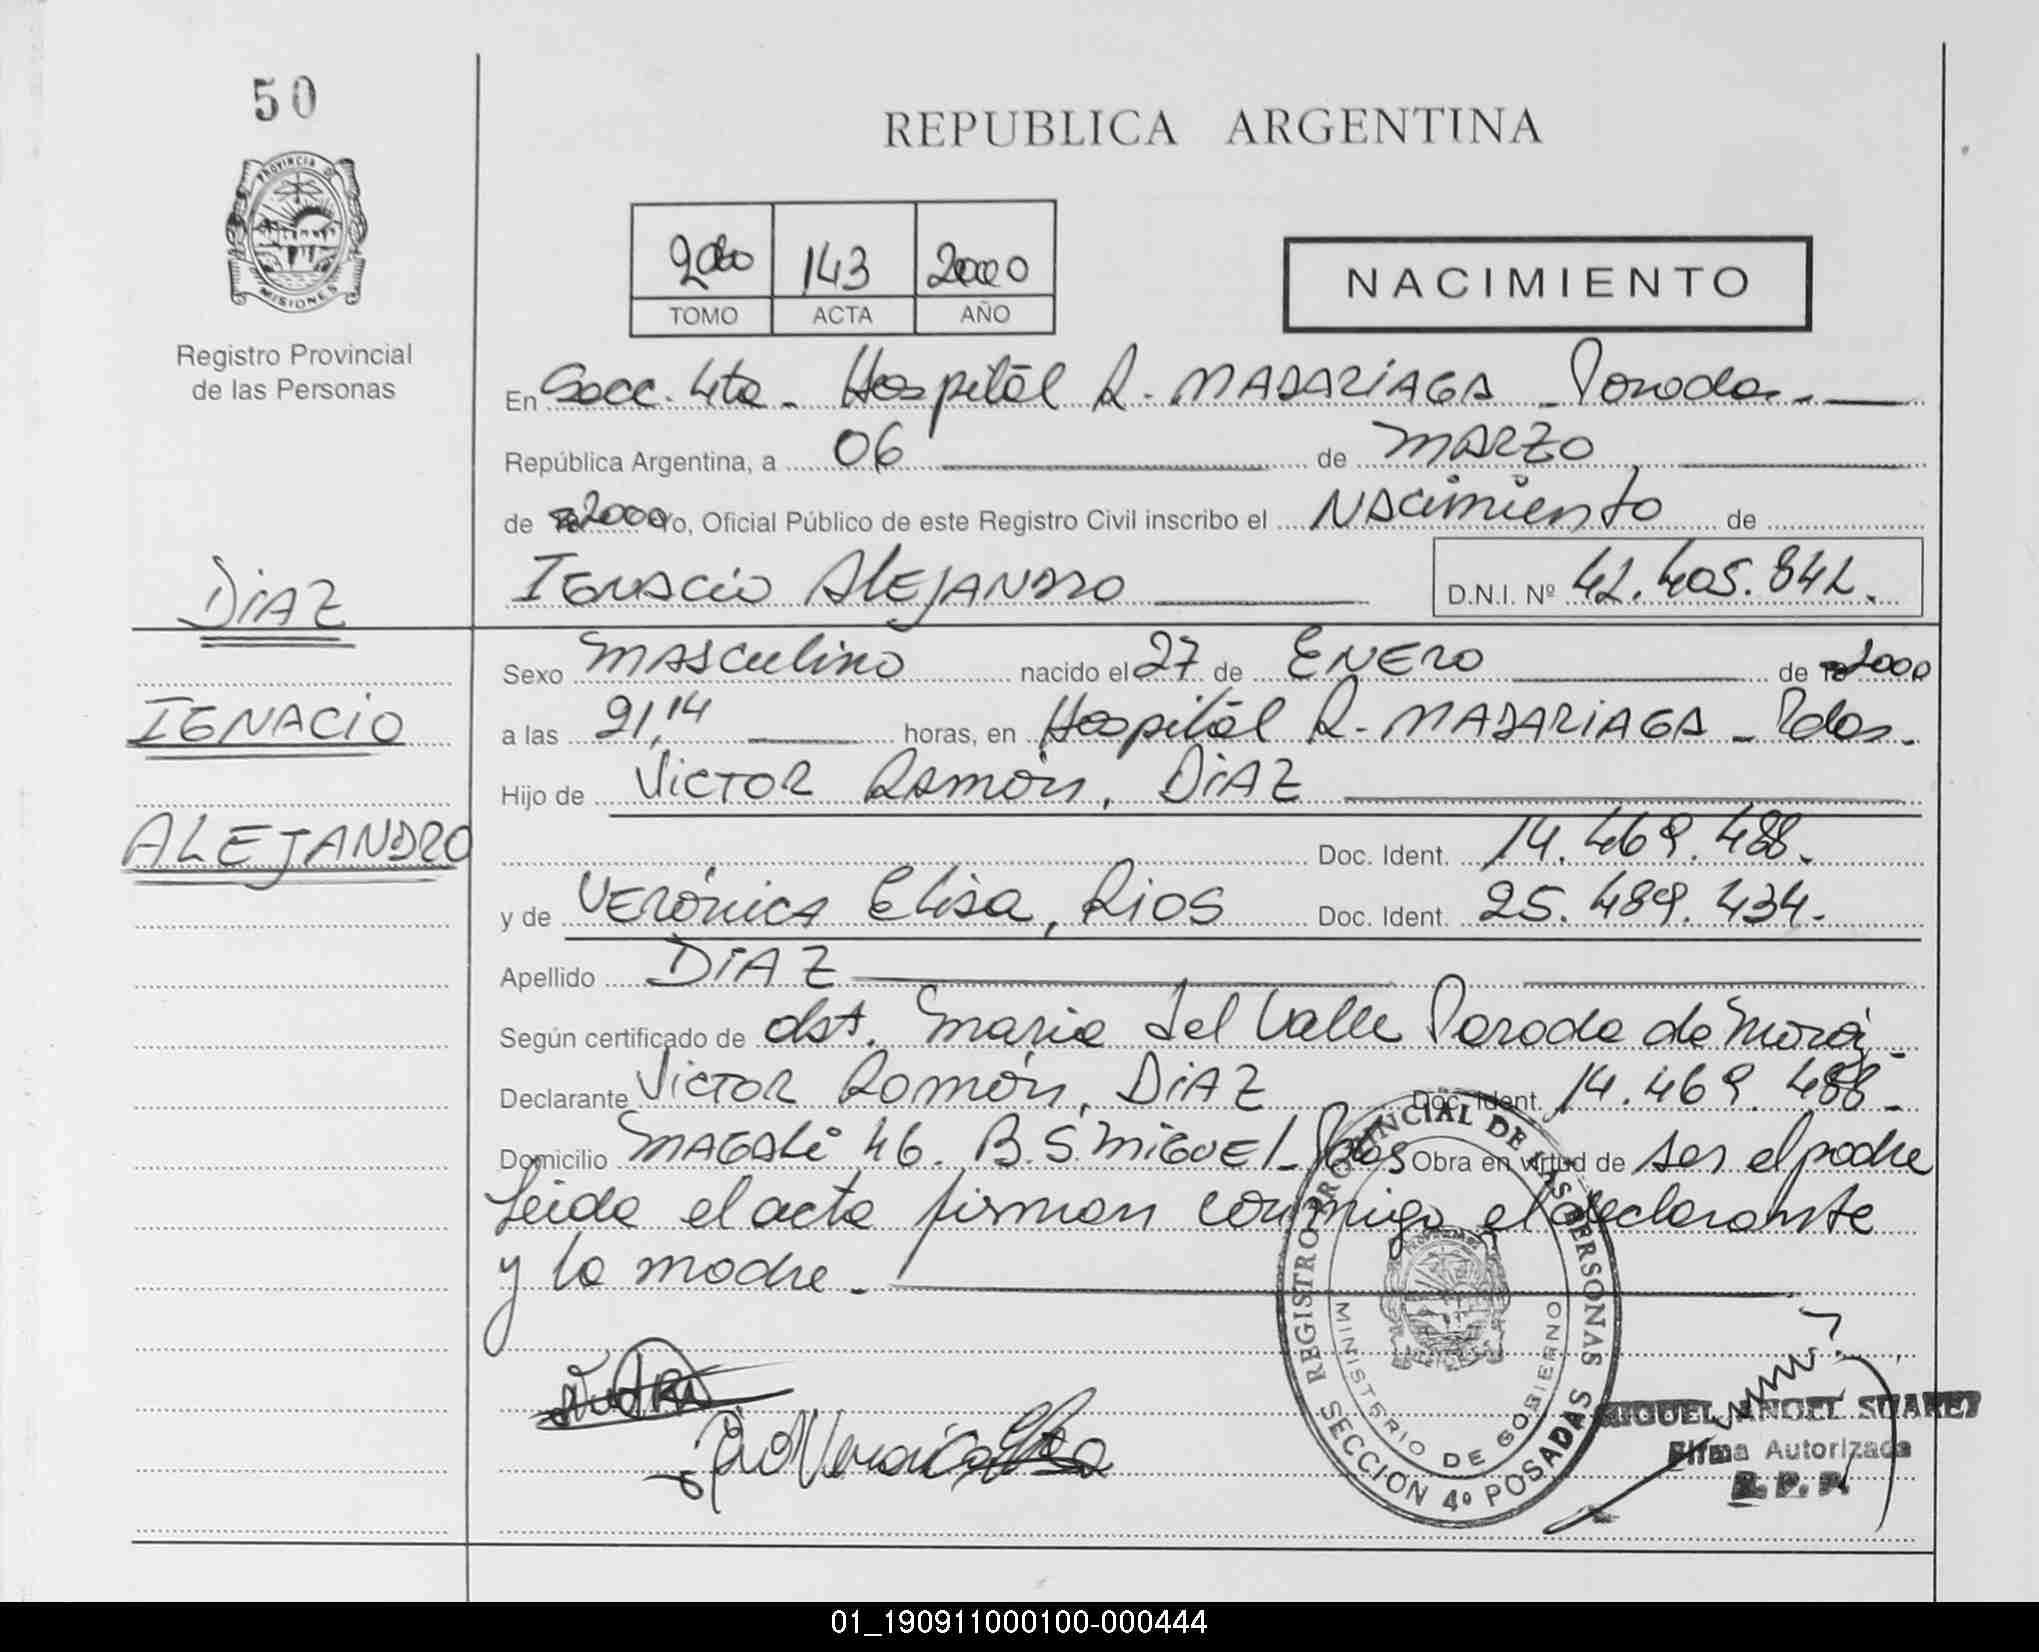 50
PROVINCIA DE
MISIONES
Registro Provincial
de las Personas
REPUBLICA ARGENTINA
143 2000
TOMO ACTA AÑO
NACIMIENTO
En Secc. 4ta - Hospital R. MADARIAGA - Posadas. -
República Argentina, a 06 de MARZO
de 2000 Yo, Oficial Público de este Registro Civil inscribo el NAcimiento de
DiAZ
IGNACio ALEJANDRO D.N.I. Nº 42.405.842.
IGNACIO
ALEJANDRO
Sexo MASCulino nacido el 27 de ENERO de 2000
a las 21,14 horas, en Hospital R. MADARIAGA - Pdas.
Hijo de VICTOR RAMóN, DiAZ
Doc. Ident. 14.469.488.
y de VERónica Elisa, Rios Doc. Ident. 25.489.434.
Apellido DiAZ
Según certificado de obst. Maria del Valle Posada de Mora.
Declarante VICTOR Ramón, DiAZ Doc. Ident. 14.469.488.
Domicilio MAGALi 46. B. S. MiGUEL - Pdas Obra en virtud de ser el padre
Leida el acta firman conmigo el declarante
y la madre.
REGISTRO PROVINCIAL DE LAS PERSONAS
MINISTERIO DE GOBIERNO
SECCION 4º POSADAS
MIGUEL ANGEL SUAREZ
Firma Autorizada
R. P. P.
01_190911000100-000444